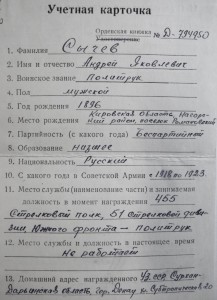 Учетная карточка
Орденская книжка
Удостоверение № Д-794950
1. Фамилия Сычев
2. Имя и отчество Андрей Яковлевич
3. Воинское звание Политрук
4. Пол мужской
5. Год рождения 1896
6. Место рождения Кировская область, Нагор-
ский район,
7. Партийность (с какого года) Беспартийный
8. Образование низшее
9. Национальность Русский
10. С какого года в Советской Армии с 1918 по 1923.
11. Место службы (наименование части) и занимаемая
должность в момент награждения 465
Стрелковый полк, 51 Стрелковой диви-
зии, Южного фронта – политрук
12. Место службы и должность в настоящее время
Не работает
13. Домашний адрес награжденного Уз ССР Сурхан-
Дарьинская область, гор. Денау ул.